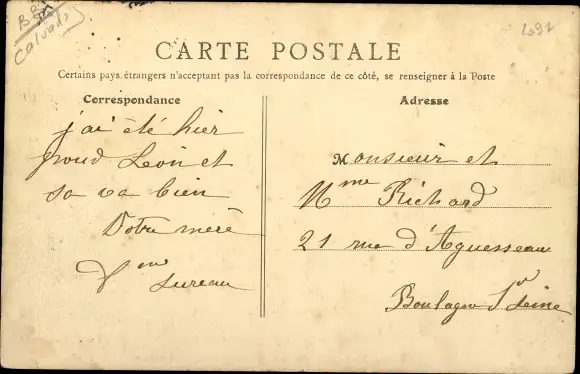 Calvados
1097
CARTE POSTALE
Certains pays étrangers n'acceptant pas la correspondance de ce côté, se renseigner à la Poste
Correspondance
j'ai été hier
Leon et
sa va bien
Votre mère
Vm Lureau
Adresse
Monsieur et
Mme Richard
21 rue d'Aguesseau
Boulogne Sr Seine